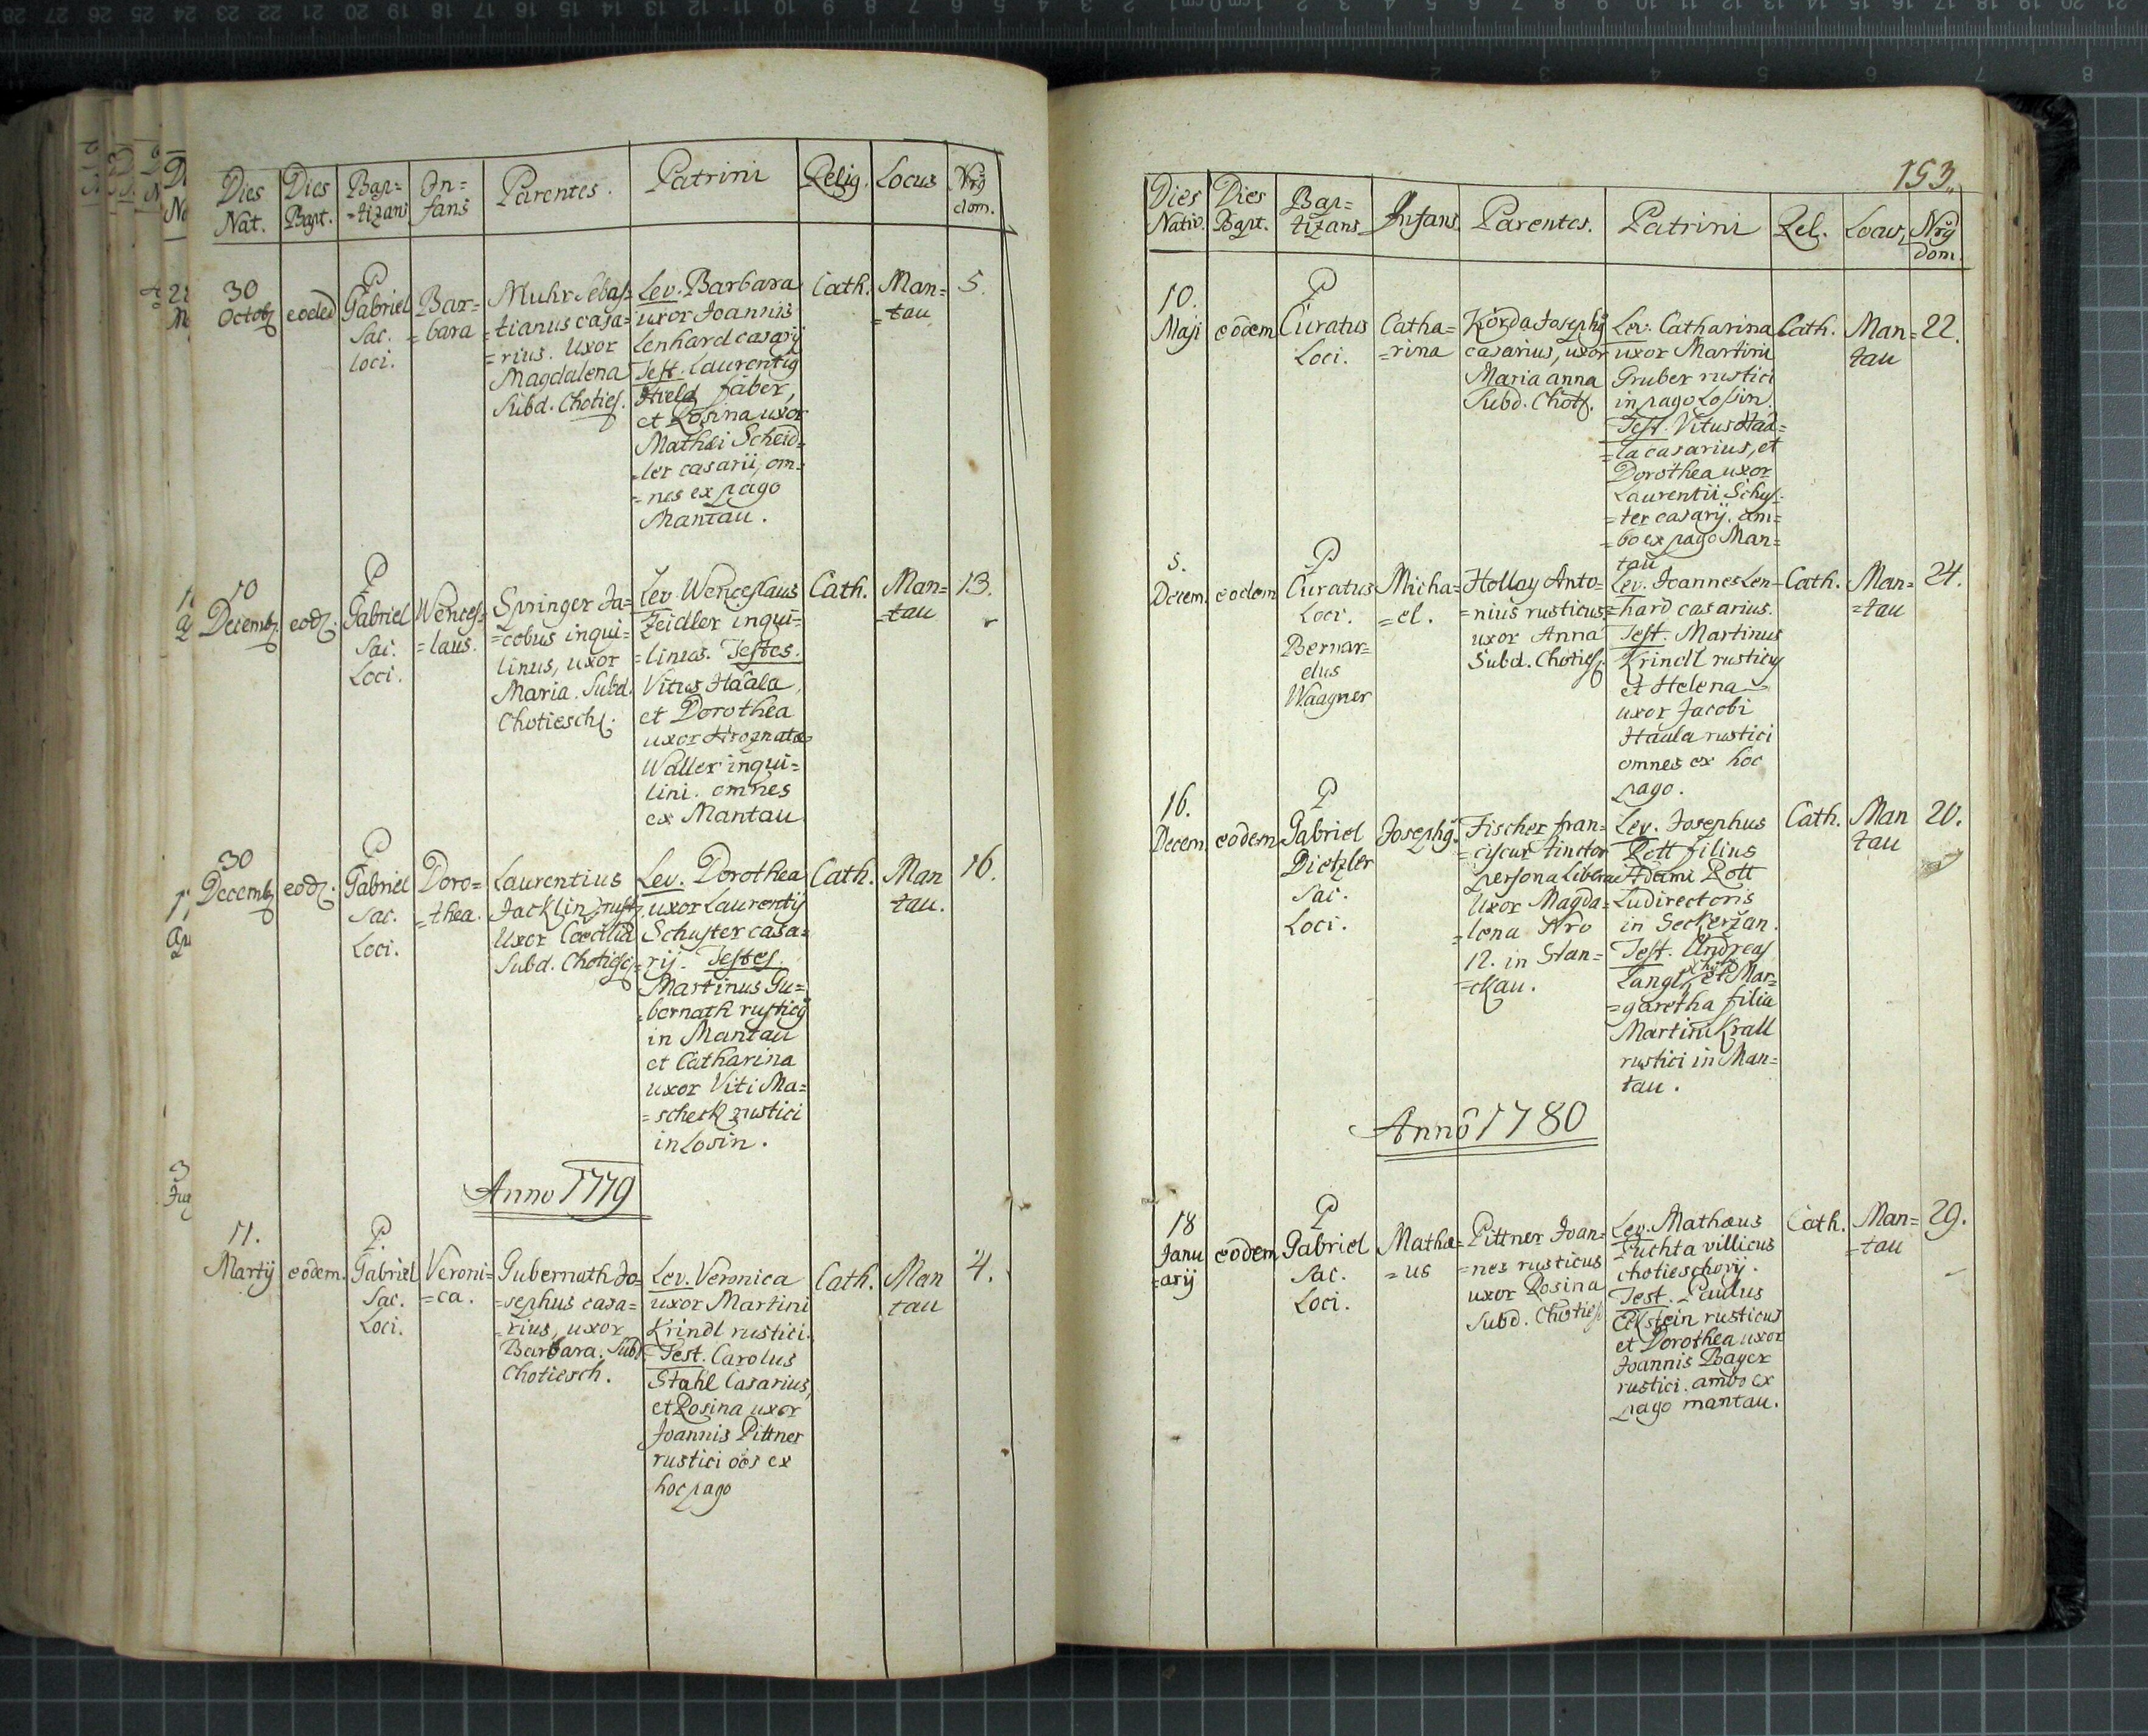 Dies Nat. Dies Bapt. Bap= =tizans In= fans Parentes. Patrini Relig. Locus Nrq dom.
30 Octobr eoded P Gabriel Sac. loci. Bar= =bara
Muhr Sebas=
=tianus casa=
=rius. uxor
Magdalena
Subd. Choties.
Lev. Barbara
uxor Joannis
Lenhard casarij
Test. Laurentiq
faber,
et Rosina uxor
Mathæi Scheid=
=ler casarii, om=
=nes ex pago
Mantau.
Cath. Man= =tau 5.
10 Decembr eod. P Gabriel Sac. Loci. Wences= =laus.
Springer Ja=
=cobus inqui=
linus, uxor
Maria. Subd.
Chotiesch.
Lev. Wenceslaus
Zeidler inqui=
=linus. Testes.
Vitus Haala,
et Dorothea
uxor Hroznatæ
Waller inqui=
lini. omnes
ex Mantau
Cath. Man= =tau 13.
30 Decembr eod. P Gabriel Sac. Loci. Doro= =thea.
Laurentius
Jacklin, rust.
Uxor Cœcilia
Subd. Chotiesc.
Lev. Dorothea
uxor Laurentij
Schuster casa=
=rij. Testes.
Martinus Gu=
=bernath rusticq
in Mantau
et Catharina
uxor Viti Ma=
=scheck rustici
in Losin.
Cath. Man tau. 16.
Anno 1779
11. Martij eodem. P. Gabriel Sac. Loci. Veroni= =ca.
Gubernath Jo=
=sephus casa=
=rius, uxor
Barbara. Subd.
Chotiesch.
Lev. Veronica
uxor Martini
Krindl rustici.
Test. Carolus
Stahl Casarius,
et Rosina uxor
Joannis Pittner
rustici ões ex
hoc pago
Cath. Man tau 4.
153.
Dies Nativ. Dies Bapt. Bap= tizans Infans. Parentes. Patrini Rel. Locus, Nrq dom.
10. Maji eodem P Curatus Loci. Catha= =rina
Korda Josephq
casarius, uxor
Maria anna
Subd. Chots.
Lev. Catharina
uxor Martini
Gruber rustici
in pago Losin.
Test. Vitus Haa=
=la casarius, et
Dorothea uxor
Laurentii Schus=
=ter casarij. am=
=bo ex pago Man=
tau
Cath. Man= tau 22.
5. Decem. eodem P Curatus Loci. Bernar= dus Waagner Micha= =el.
Hollay Anto=
=nius rusticus
uxor Anna
Subd. Choties.
Lev. Joannes Len=
=hard casarius.
Test. Martinus
Krindl rusticq
et Helena
uxor Jacobi
Haala rustici
omnes ex hoc
pago.
Cath. Man= =tau 24.
16. Decem. eodem P Gabriel Dietzler Sac. Loci. Josephq.
Fischer fran=
=ciscus tinctor
persona Libera
Uxor Magda=
=lena Nro
12. in Stan=
=ckau.
Lev. Josephus
Rott filius
Adami Rott
Ludirectoris
in Sekerzan.
Test. Andreas
Langl, et Mar=
=garetha filia
Martini Krall
rustici in Man=
tau.
Cath. Man tau 20.
Anno 1780
18 Janu =arij eodem P Gabriel Sac. Loci. Mathæ= =us
Pittner Joan=
=nes rusticus
uxor Rosina
Subd. Choties
Lev. Mathæus
Puchta villicus
chotieschovij.
Test. Paulus
Ekstein rusticus
et Dorothea uxor
Joannis Bayer
rustici. ambo ex
pago mantau.
Cath. Man= =tau 29.